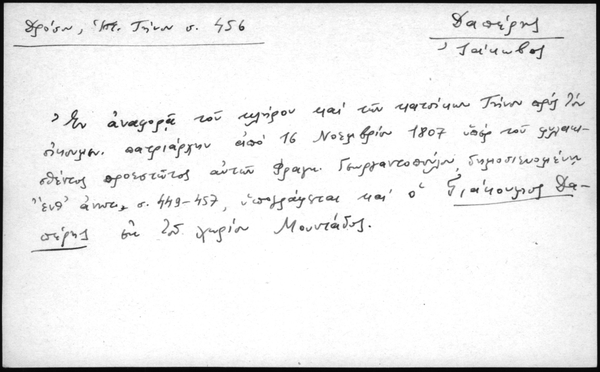 Δρόσου, Ἱστ. Τήνου σ. 456
Δαπέρης
Ἰάκωβος
Ἐν ἀναφορᾷ τοῦ κλήρου καί τῶν κατοίκων Τήνου πρός τόν
οἰκουμεν. πατριάρχην ἀπό 16 Νοεμβρίου 1807 ὑπέρ τοῦ φυλακι-
σθέντος προεστῶτος αὐτῶν Φραγκ. Γεωργαντοπούλου, δημοσιευομένῃ
ἔνθ' ἀνωτ. σ. 449-457, ὑπογράφεται καί ὁ Γιάκουμος Δα-
πέρης ἐκ τοῦ χωρίου Μουντάδος.